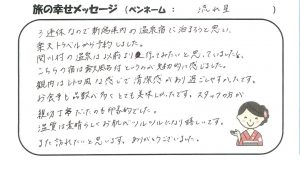 旅の幸せメッセージ（ペンネーム ： 流れ星 ）
3連休なので新潟県内の温泉宿に泊まろうと思い、
楽天トラベルから予約しました。
関川村の温泉は以前より 行ってみたいと思っていました。
こちらの宿は 風呂付というのが魅力的に感じました。
館内はレトロ風な感じで清潔感があり過ごしやすかったです。
お食事も品数が多くとても美味しかったです。スタッフの方が
親切丁寧だったのも印象的でした。
温質は素晴らしくお肌がツルツルになり嬉しいです。
また訪れたいと思います。ありがとうございました。